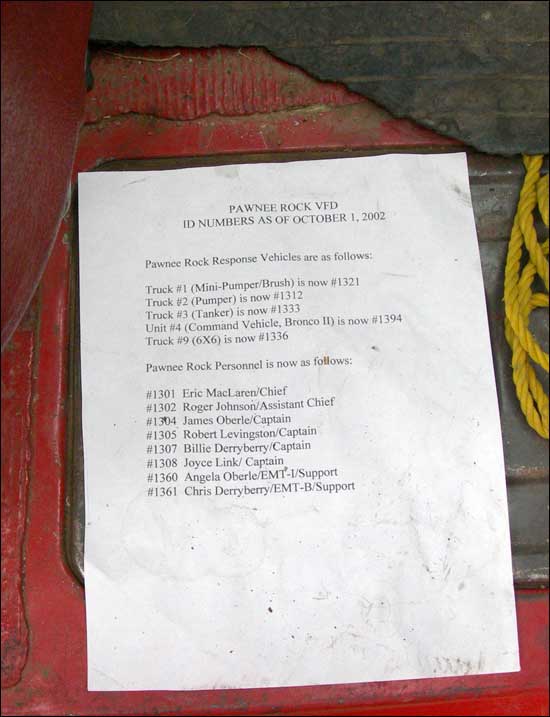 PAWNEE ROCK VFD
ID NUMBERS AS OF OCTOBER 1, 2002
Pawnee Rock Response Vehicles are as follows:
Truck #1 (Mini-Pumper/Brush) is now #1321
Truck #2 (Pumper) is now #1312
Truck #3 (Tanker) is now #1333
Unit #4 (Command Vehicle, Bronco II) is now #1394
Truck #9 (6X6) is now #1336
Pawnee Rock Personnel is now as follows:
#1301 Eric MacLaren/Chief
#1302 Roger Johnson/Assistant Chief
#1304 James Oberle/Captain
#1305 Robert Levingston/Captain
#1307 Billie Derryberry/Captain
#1308 Joyce Link/ Captain
#1360 Angela Oberle/EMT-I/Support
#1361 Chris Derryberry/EMT-B/Support